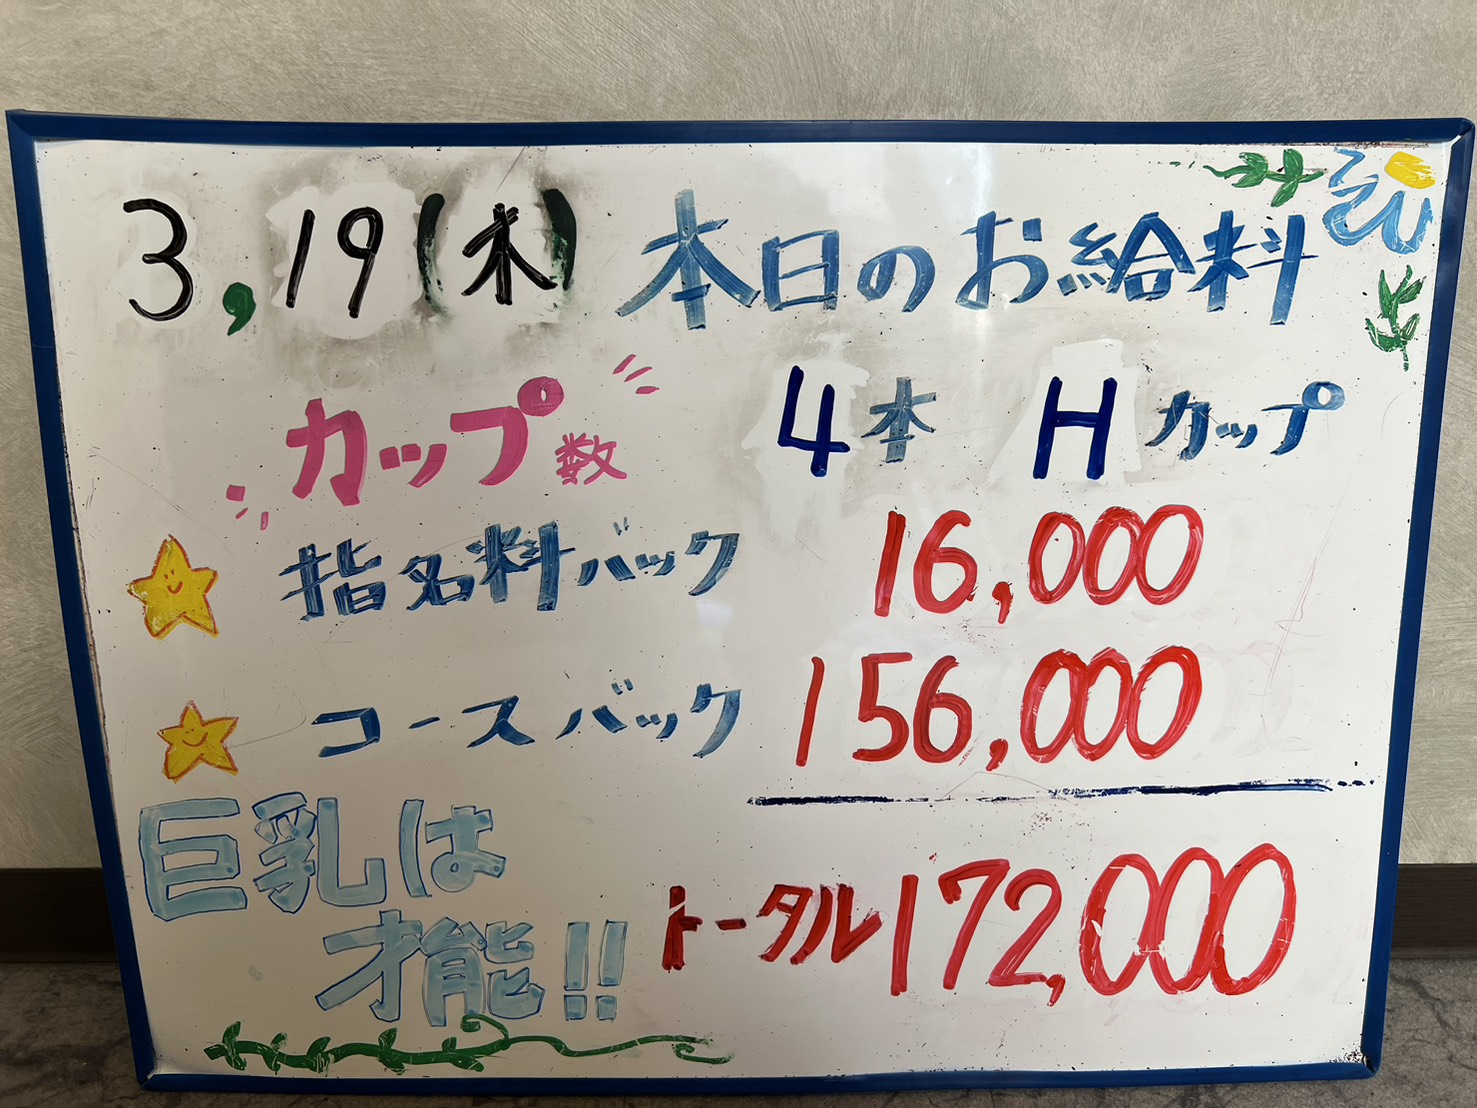 3,19(木) 本日のお給料
カップ数 4本 Hカップ
指名料バック 16,000
コースバック 156,000
巨乳は
才能!!
トータル172,000